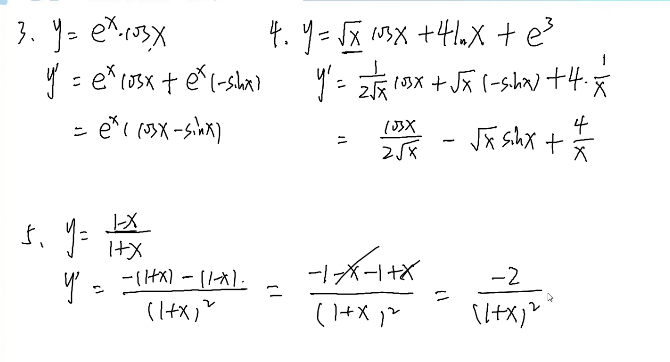 3. y = eˣ·cosx
y' = eˣcosx + eˣ(-sinx)
= eˣ(cosx-sinx)
4. y = √x cosx + 4lnx + e³
y' = 1/(2√x) cosx + √x (-sinx) + 4·1/x
= cosx/(2√x) - √x sinx + 4/x
5. y = (1-x)/(1+x)
y' = (-(1+x) - (1-x)·)/(1+x)² = (-1-x-1+x)/(1+x)² = -2/(1+x)²